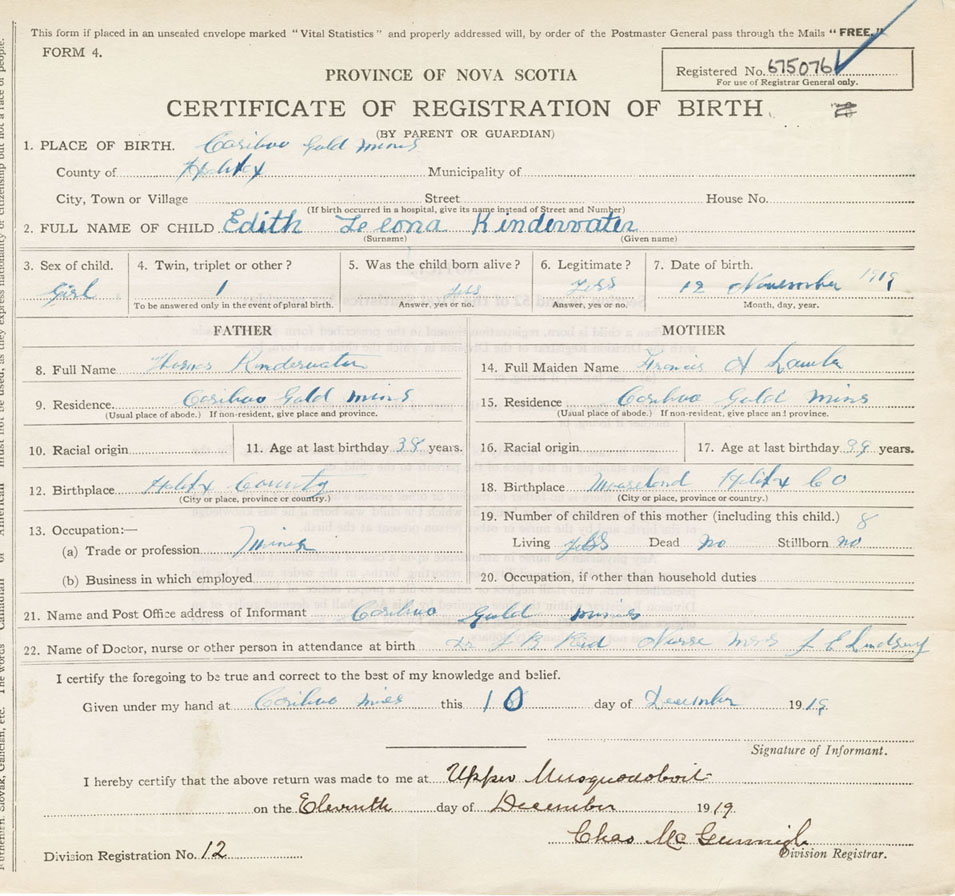 This form if placed in an unsealed envelope marked "Vital Statistics" and properly addressed will, by order of the Postmaster General pass through the Mails "FREE."
FORM 4.
Registered No. 6750761
For use of Registrar General only.
PROVINCE OF NOVA SCOTIA
CERTIFICATE OF REGISTRATION OF BIRTH.
(BY PARENT OR GUARDIAN)
1. PLACE OF BIRTH. Cariboo Gold mines
County of Halifax Municipality of
City, Town or Village Street House No.
(If birth occurred in a hospital, give its name instead of Street and Number)
2. FULL NAME OF CHILD Edith Leona Kinderwater
(Surname) (Given name)
3. Sex of child. 4. Twin, triplet or other? 5. Was the child born alive? 6. Legitimate? 7. Date of birth.
Girl 1 yes yes 12 November 1919
To be answered only in the event of plural birth. Answer, yes or no. Answer, yes or no. Month, day, year.
FATHER MOTHER
8. Full Name Kinderwater 14. Full Maiden Name Francis A
9. Residence. Cariboo Gold mines 15. Residence Cariboo Gold Mines
(Usual place of abode.) If non-resident, give place and province. (Usual place of abode.) If non-resident, give place and province.
10. Racial origin 11. Age at last birthday 38 years. 16. Racial origin 17. Age at last birthday 39 years.
12. Birthplace Halifx County 18. Birthplace Mooseland Halifx CO
(City or place, province or country.) (City or place, province or country.)
13. Occupation:— 19. Number of children of this mother (including this child.) 8
(a) Trade or profession Miner Living yes Dead no Stillborn no
(b) Business in which employed 20. Occupation, if other than household duties
21. Name and Post Office address of Informant Cariboo Gold mines
22. Name of Doctor, nurse or other person in attendance at birth Dr Nurse Mrs J E Lindsay
I certify the foregoing to be true and correct to the best of my knowledge and belief.
Given under my hand at Cariboo Mines this 10 day of December 1919
Signature of Informant.
I hereby certify that the above return was made to me at Upper Musquodoboit
on the Eleventh day of December 1919
Chas Mc
Division Registration No. 12 Division Registrar.